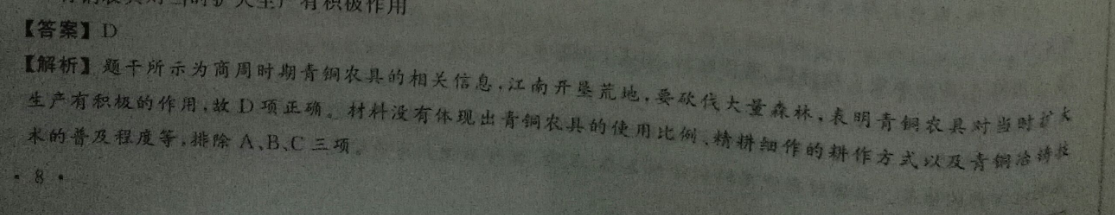 青铜农具对当时扩大生产有积极作用
【答案】D
【解析】题干所示为商周时期青铜农具的相关信息,江南开垦荒地,要砍伐大量森林,表明青铜农具对当时扩大
生产有积极的作用,故D项正确。材料没有体现出青铜农具的使用比例、精耕细作的耕作方式以及青铜冶铸技
术的普及程度等,排除A、B、C三项。
· 8 ·